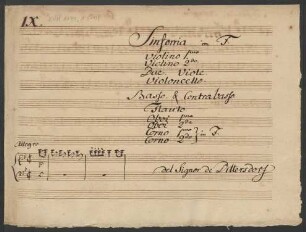 IX.
Sinfonia in F.
Violino 1mo
Violino 2do
Due Viole
Violoncello
Basso & Contrabasso
Flauto
Oboi 1mo
Oboi 2do
Corno 1mo
Corno 2do
in F.
Allegro
del Signor de Dittersdorf